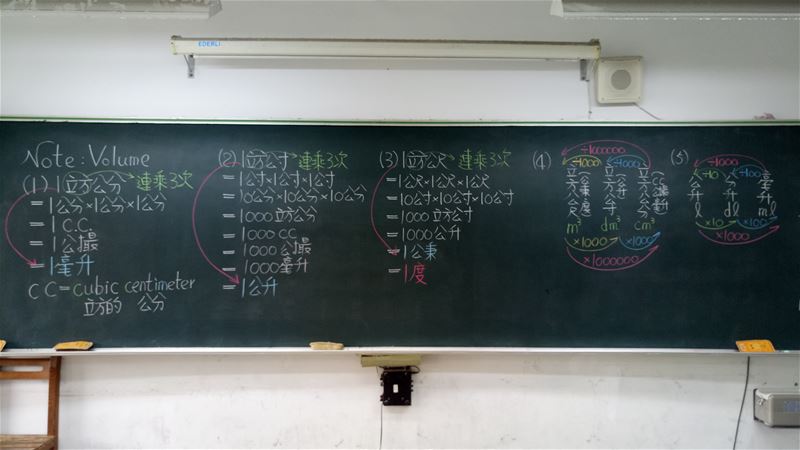 EDERLI
Note : Volume
(1) 1立方公分 連乘3次
= 1公分×1公分×1公分
= 1 C.C.
= 1公撮
= 1毫升
CC = cubic centimeter
立方的 公分
(2) 1立方公寸 連乘3次
= 1公寸×1公寸×1公寸
= 10公分×10公分×10公分
= 1000立方公分
= 1000 CC
= 1000公撮
= 1000毫升
= 1公升
(3) 1立方公尺 連乘3次
= 1公尺×1公尺×1公尺
= 10公寸×10公寸×10公寸
= 1000立方公寸
= 1000公升
= 1公秉
= 1度
(4) ÷1000000
÷1000 ÷1000
立方公尺 立方公寸 立方公分
m³ dm³ cm³
×1000 ×1000
×1000000
(5) ÷1000
÷10 ÷100
公升 分升 毫升
l dl ml
×10 ×100
×1000